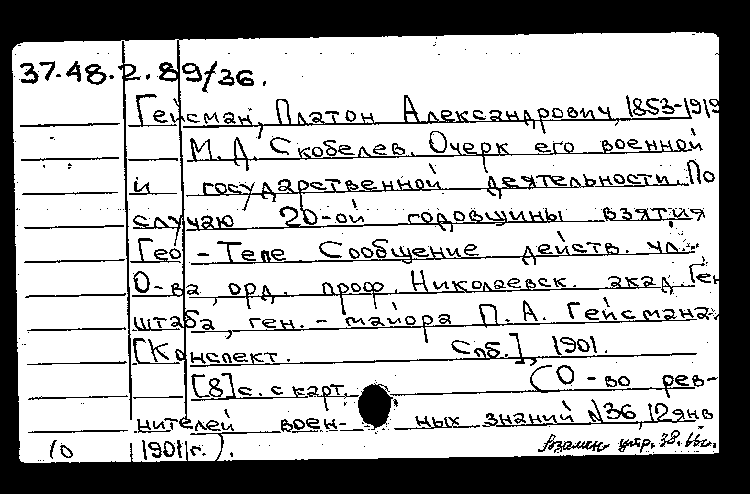 37.48.2.89/36.
Гейсман, Платон Александрович, 1853-1919
М.Д. Скобелев. Очерк его военной
и государственной деятельности. По
случаю 20-ой годовщины взятия
Гео-Тепе Сообщение действ. чл.
О-ва, орд. проф. Николаевск. акад. Ген.
штаба, ген.-майора П.А. Гейсмана.
[Конспект. Спб.], 1901.
[8] с. с карт. (О-во рев-
нителей воен- ных знаний N36, 12 янв
1901 г.).